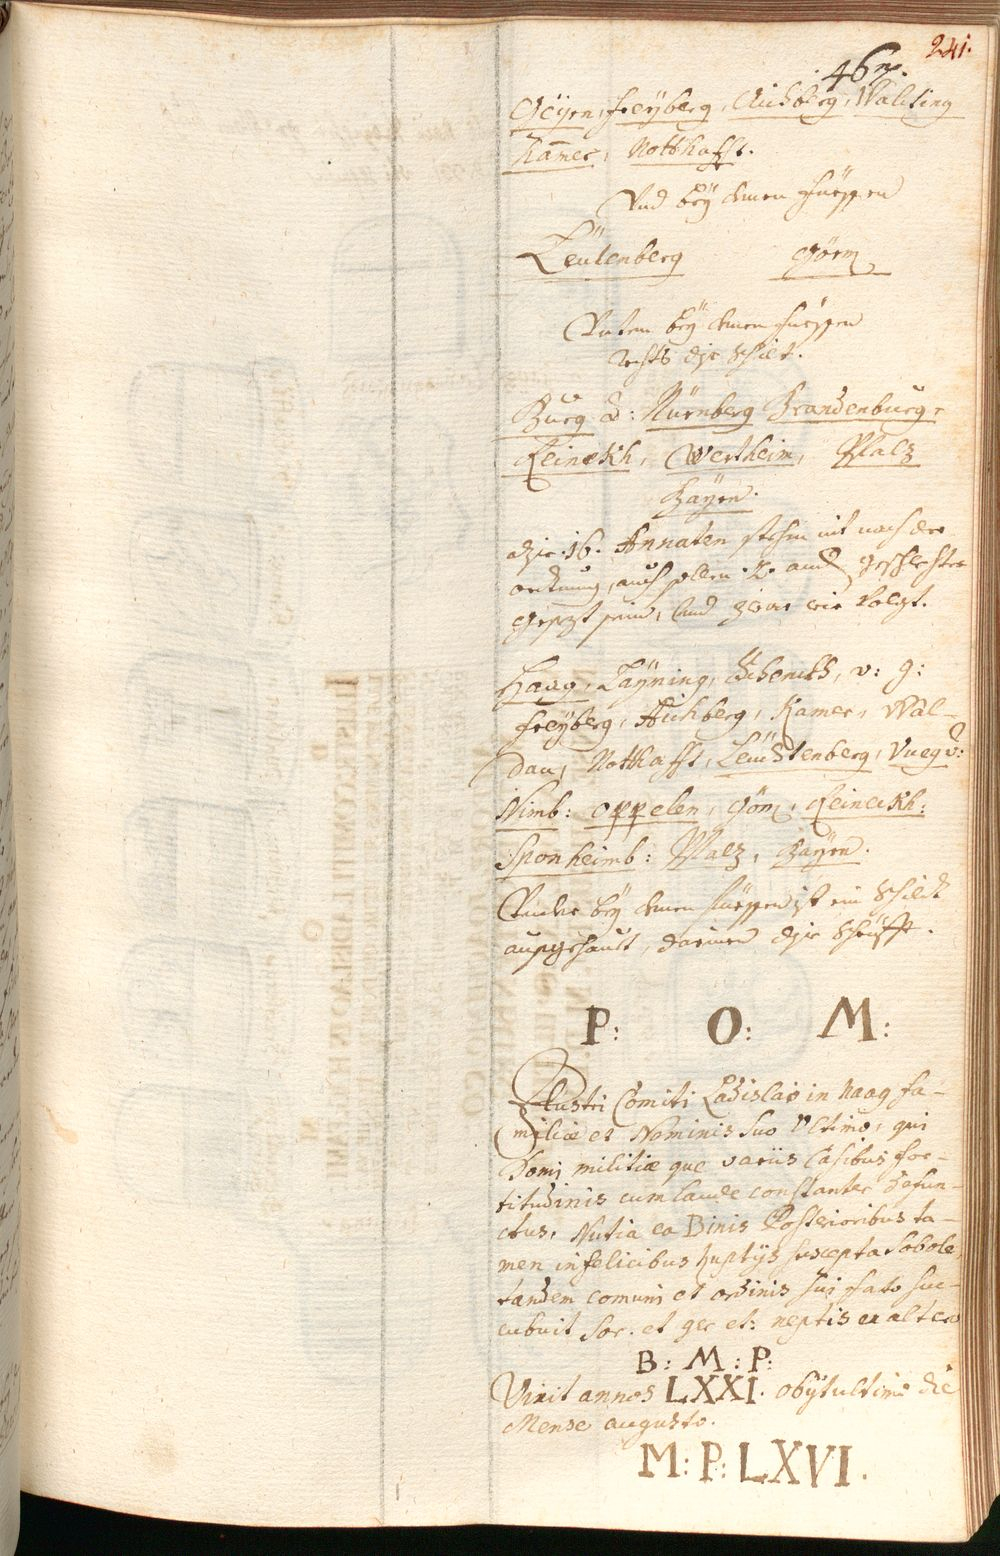 241.
467.
Geÿen, Freÿberg, Aichberg, Walting
Kam̄er, Notthafft.
Vnd beÿ denen Füessen
Leütenberg Görm
Vnten beÿ denen Füessen
rechts dise Schilt.
Burg v: Nürnberg Brandenburg,
Reinekh, Wertheim, Pfalz
Baÿrn.
dise 16. Annaten stehen nit nach der
ordnung, auch sollen 2. and geschlechter
gesezt sein, Und zwar wie volgt.
Haag, Laÿning, Schenckh, v: g:
Freÿberg, Aichberg, Kamer, Wal-
dau, Notthafft, Leuchtenberg, Burg v:
Nimb: Oppelen, Görz, Reineckh:
Sponheimb: Pfalz, Baÿrn.
Vnder beÿ denen Füessen ist ein Schildt
ausgehault, darinen dise Schrüfft.
P: O: M:
Illustri Comiti Ladislao in Haag fa-
miliæ et Nominis Suo Ultimo, qui
Domi militiæ que variis Casibus for-
titudinis cum laude constanter defun-
ctus, Nulla ea Binis Posterioribus ta-
men infelicibus nuptÿs suscepta Sobole,
tandem comuni et ordinis sui fato suc-
cubuit Sor. et ger et: neptis ex altera
B: M: P:
Vixit annos LXXI. obÿt ultimo die
Mense augusto.
M: P: LXVI.